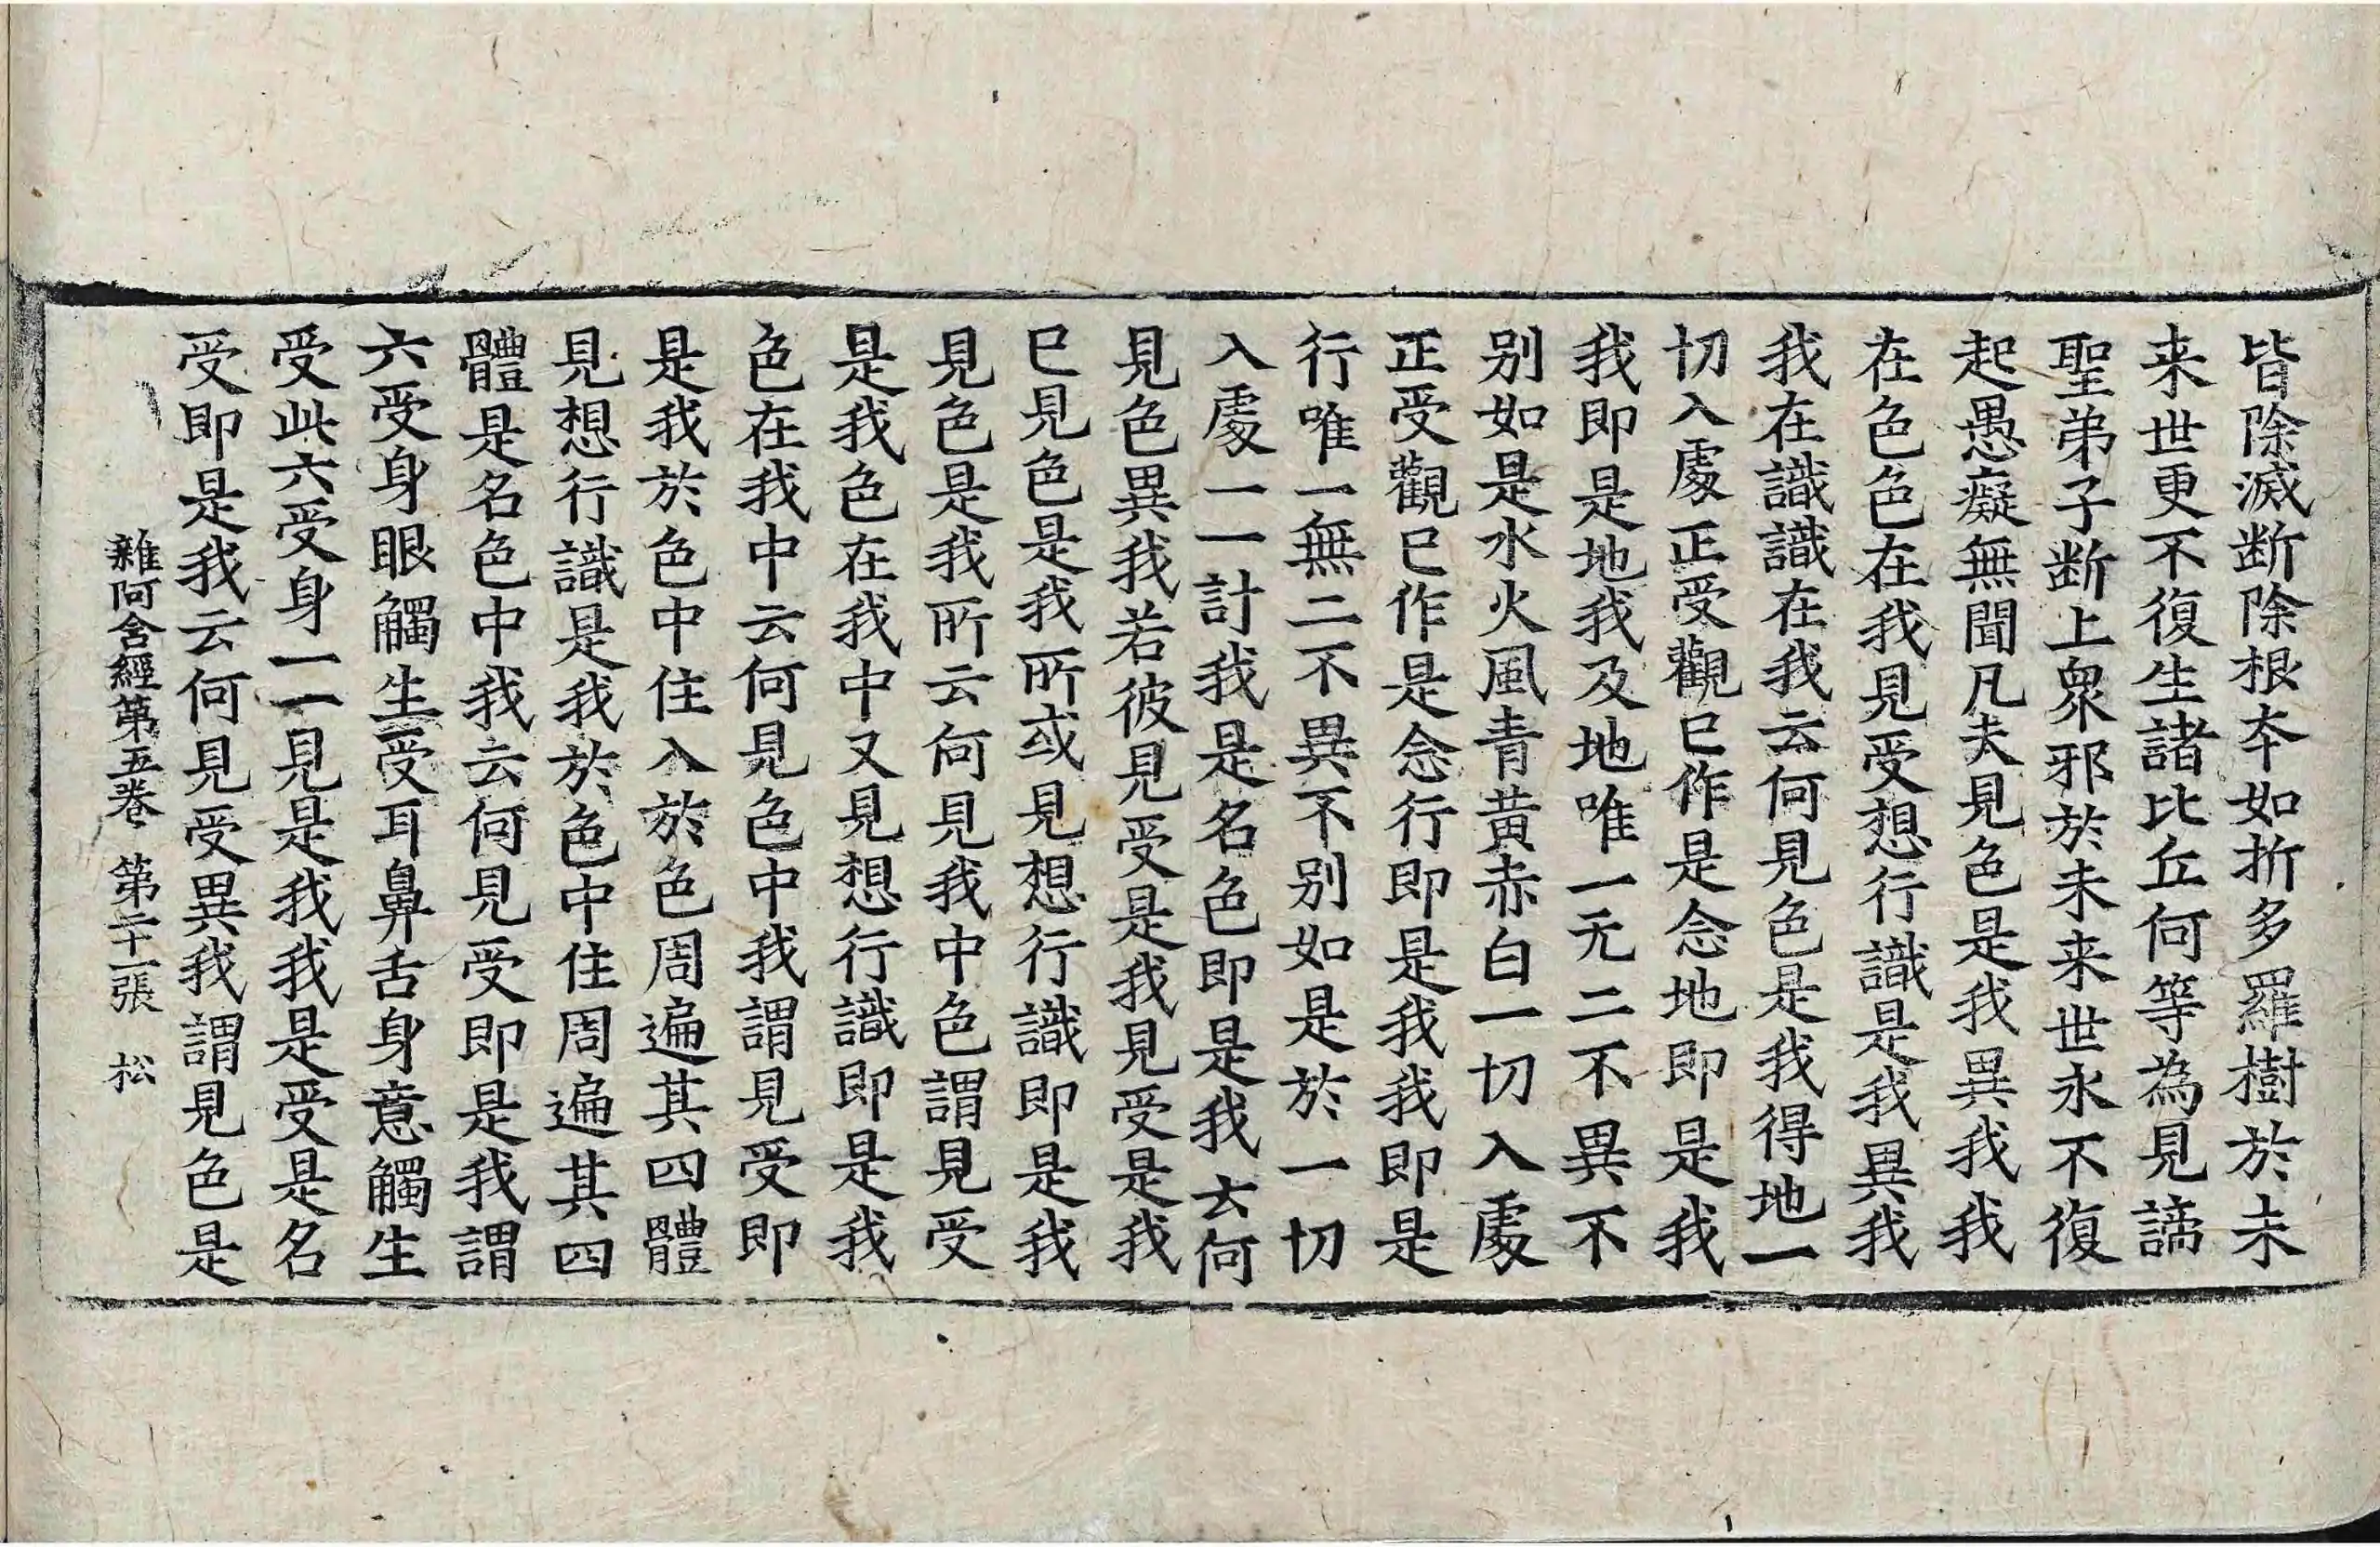 皆除滅断除根夲如折多羅樹於未
来世更不復生諸比丘何等為見諦
聖弟子断上衆邪於未来世永不復
起愚癡無聞凡夫見色是我異我我
在色色在我見受想行識是我異我
我在識識在我云何見色是我得地一
切入處正受觀已作是念地即是我
我即是地我及地唯一无二不異不
别如是水火風青黄赤白一切入處
正受觀已作是念行即是我我即是
行唯一無二不異不别如是於一切
入處一一計我是名色即是我云何
見色異我若彼見受是我見受是我
已見色是我所或見想行識即是我
見色是我所云何見我中色謂見受
是我色在我中又見想行識即是我
色在我中云何見色中我謂見受即
是我於色中住入於色周遍其四體
見想行識是我於色中住周遍其四
體是名色中我云何見受即是我謂
六受身眼觸生受耳鼻舌身意觸生
受此六受身一一見是我我是受是名
受即是我云何見受異我謂見色是
雜阿含經第五卷 第二十一張 松